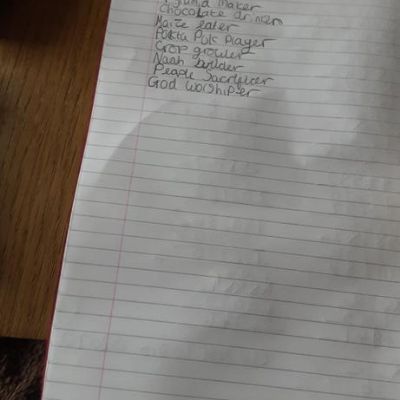 maker
Chocolate drinker
Maize eater
Pokta Pok Player
Crop grower
Naah builder
People Sacrificer
God worshipper